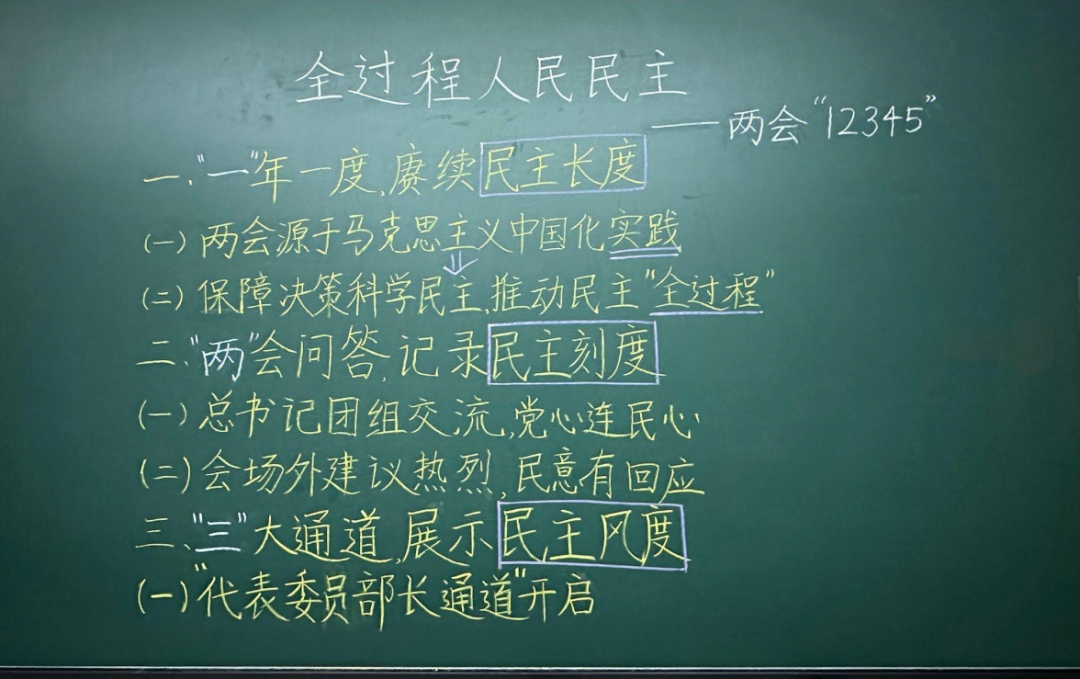 全过程人民民主
——两会“12345”
一、“一”年一度,赓续民主长度
(一)两会源于马克思主义中国化实践
(二)保障决策科学民主,推动民主“全过程”
二、“两”会问答,记录民主刻度
(一)总书记团组交流,党心连民心
(二)会场外建议热烈,民意有回应
三、“三”大通道,展示民主风度
(一)“代表委员部长通道”开启